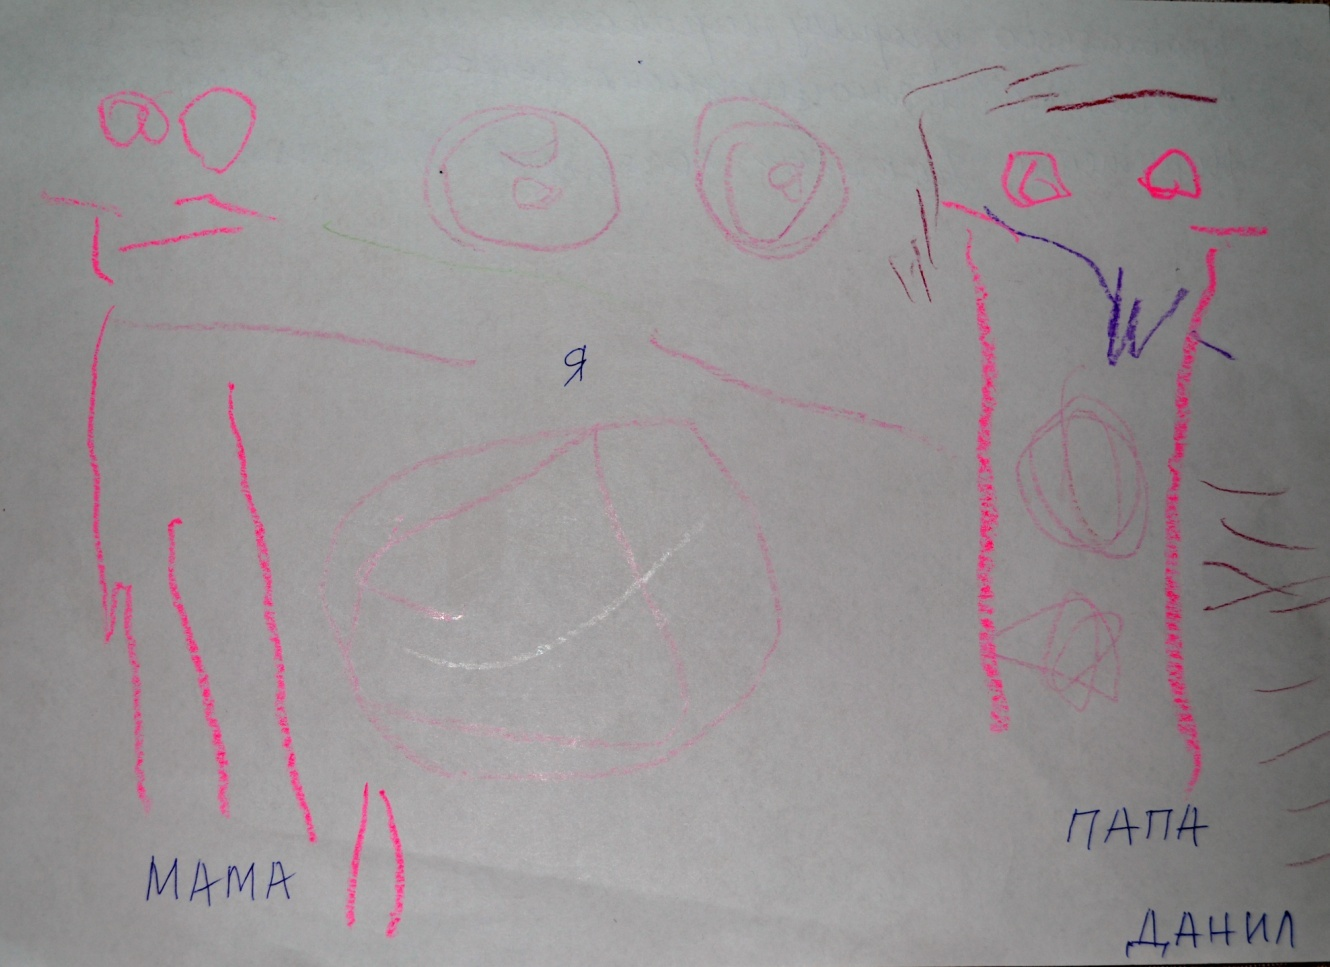 Я
МАМА
ПАПА
ДАНИЛ